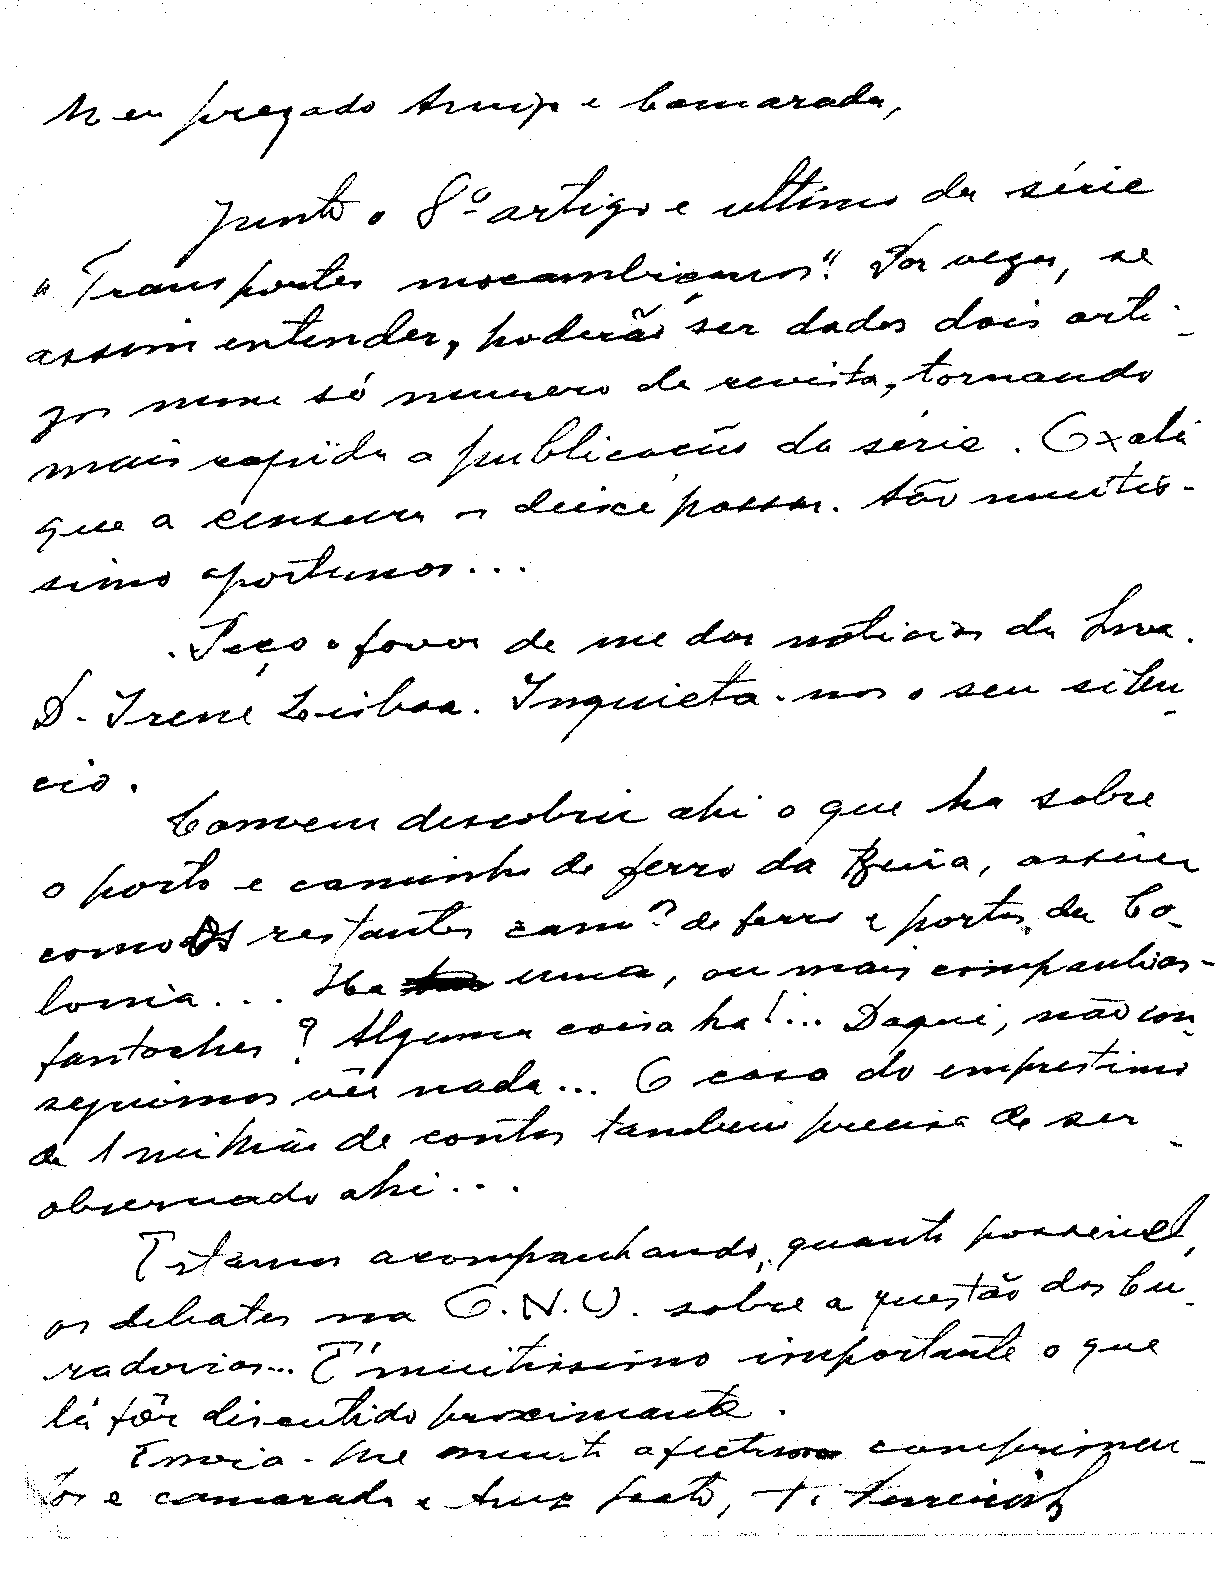 Meu prezado Amigo e Camarada,
Junto o 8º artigo e ultimo da série
"Transportes moçambicanos". Por vezes, se
assim entender, poderão ser dados dois arti-
gos num só numero da revista, tornando
mais rapida a publicação da série. Oxalá
que a censura os deixe passar. São muitis-
simo oportunos...
Peço o favor de me dar noticias da Snra.
D. Irene Lisboa. Inquieta-nos o seu silen-
cio.
Convem descobrir ahi o que ha sobre
o porto e caminho de ferro da Beira, assim
como os restantes camº de ferro e portos da Co-
lonia... Ha uma, ou mais companhias-
fantoches? Alguma coisa ha!... Daqui, não con-
seguimos vêr nada... O caso do emprestimo
de 1 milhão de contos tambem precisa de ser
observado ahi...
Estamos acompanhando, quanto possivel,
os debates na O.N.U. sobre a questão dos Cu-
radorias... É muitissimo importante o que
lá fôr discutido proximamente.
Envia-lhe muito afectuosos cumprimen-
tos o camarada e Amº